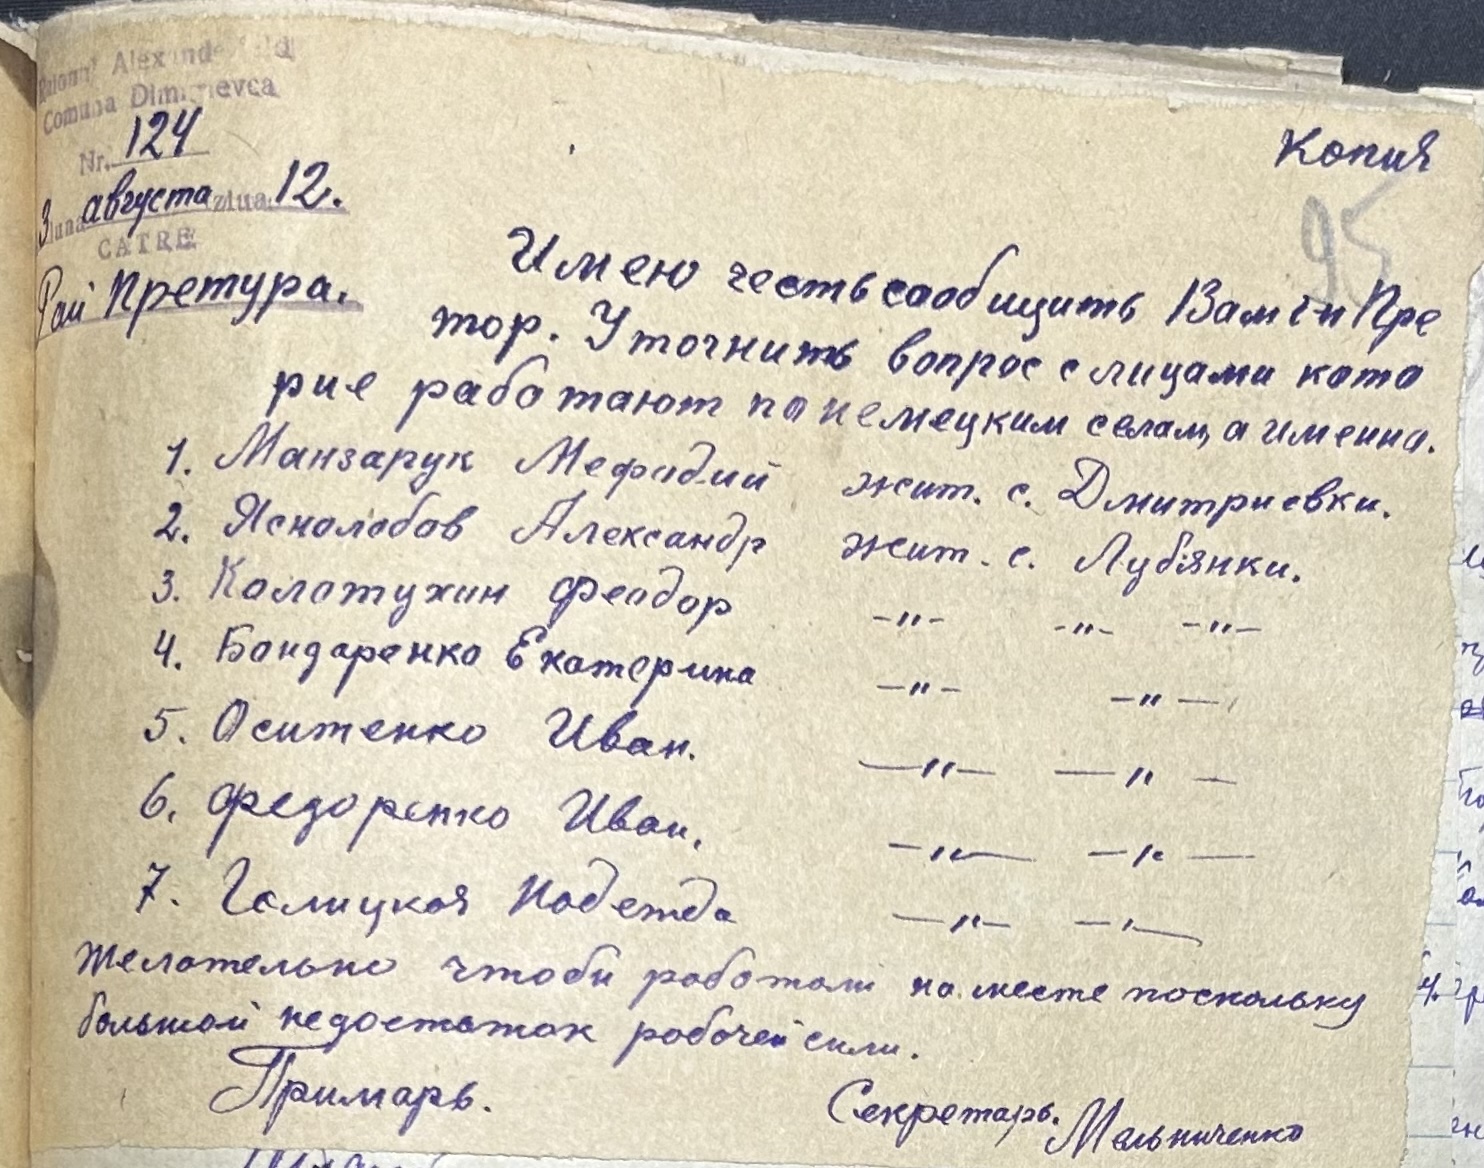 Raionul Alexanderfeld
Comuna Dimitrievca
Nr. 124
luna августа ziua 12.
CATRE
Рай Претура.
Копия
95
Имею честь сообщить Вам г-н Пре
тор. Уточнить вопрос с лицами кото
рие работают по немецким селам, а именно.
1. Манзарук Мефодий жит. с. Дмитриевки.
2. Яснолобов Александр жит. с. Лубянки.
3. Колотухин Феодор -"- -"- -"-
4. Бондаренко Екатерина -"- -"-
5. Оситенко Иван. -"- -"-
6. Федоренко Иван. -"- -"-
7. Галицкая Надежда -"- -"-
Желательно чтоби работали на месте поскольку
большой недостаток робочей сили.
Примарь. Секретарь. Мельниченко